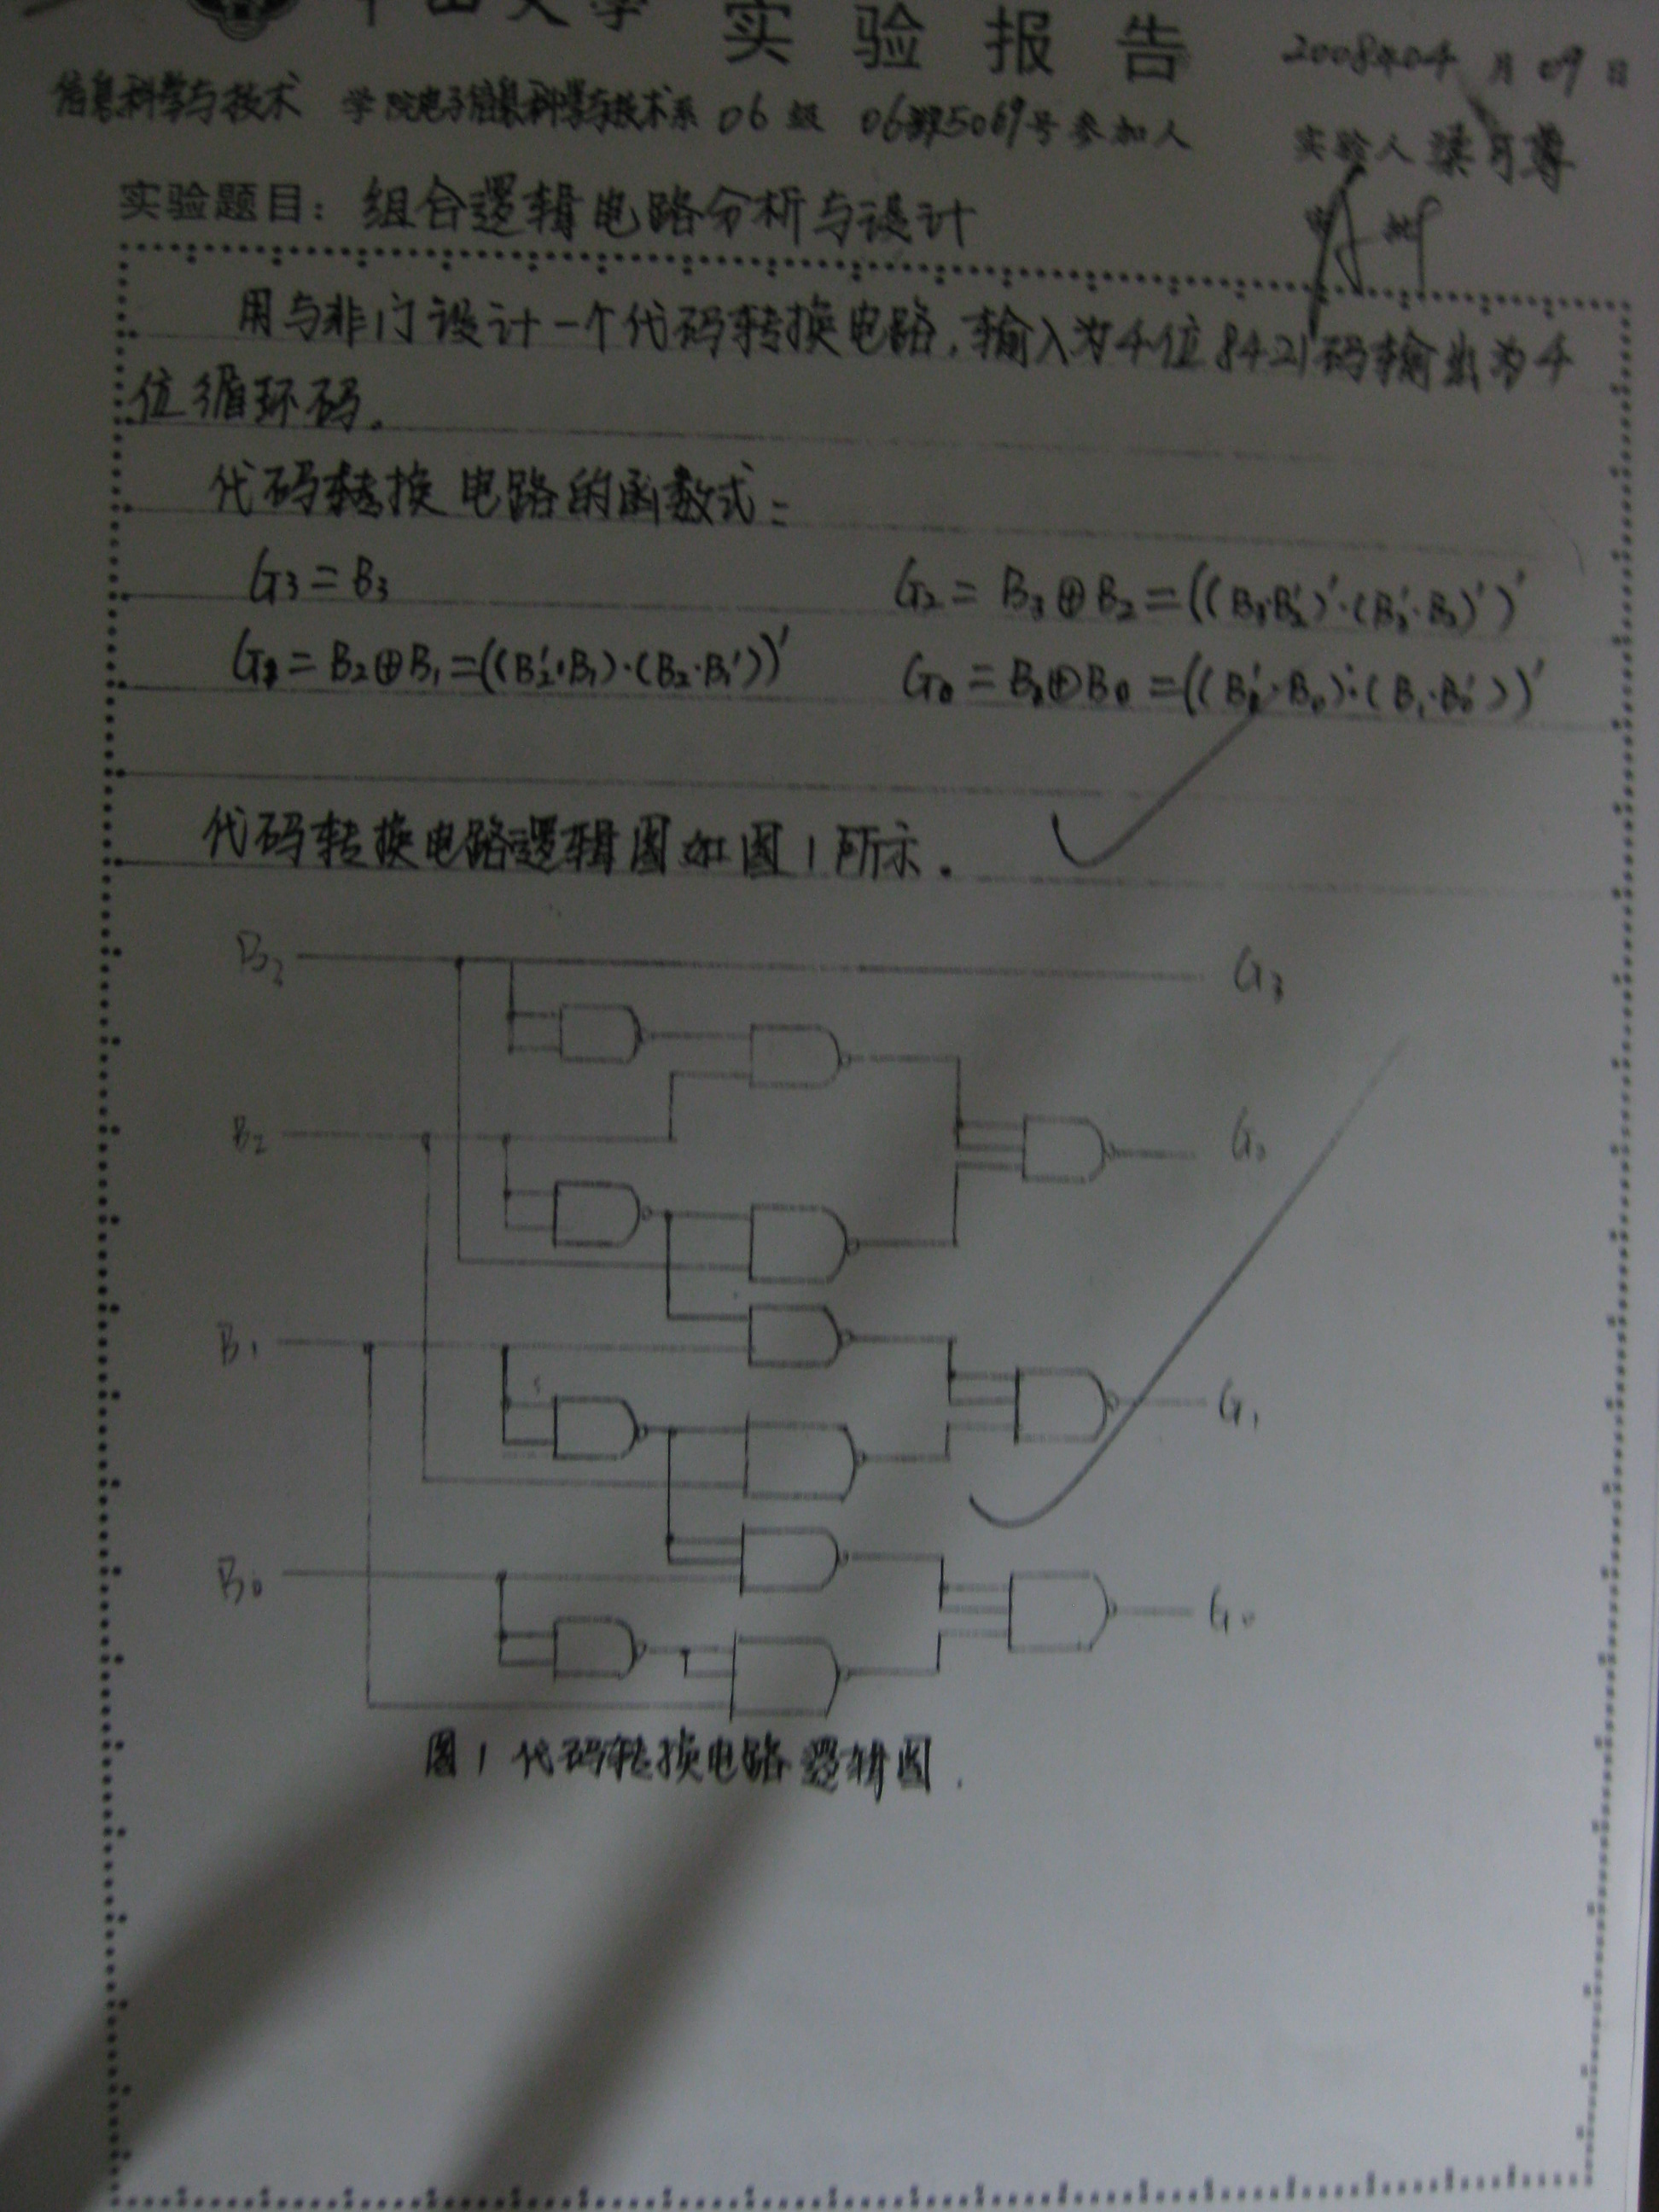 中山大学 实验报告 2008年04月09日
信息科学与技术 学院电子信息科学与技术系 06 级 号参加人 实验人
实验题目: 组合逻辑电路分析与设计
用与非门设计一个代码转换电路,输入为4位8421码输出为4
位循环码.
代码转换电路的函数式:
G3=B3 G2=B3⊕B2=((B3·B2')'·(B3'·B2)')'
G1=B2⊕B1=((B2'·B1)·(B2·B1'))' G0=B1⊕B0=((B1'·B0)·(B1·B0'))'
代码转换电路逻辑图如图1所示.
B3 G3
B2 G2
B1 G1
B0 G0
图1 代码转换电路逻辑图.